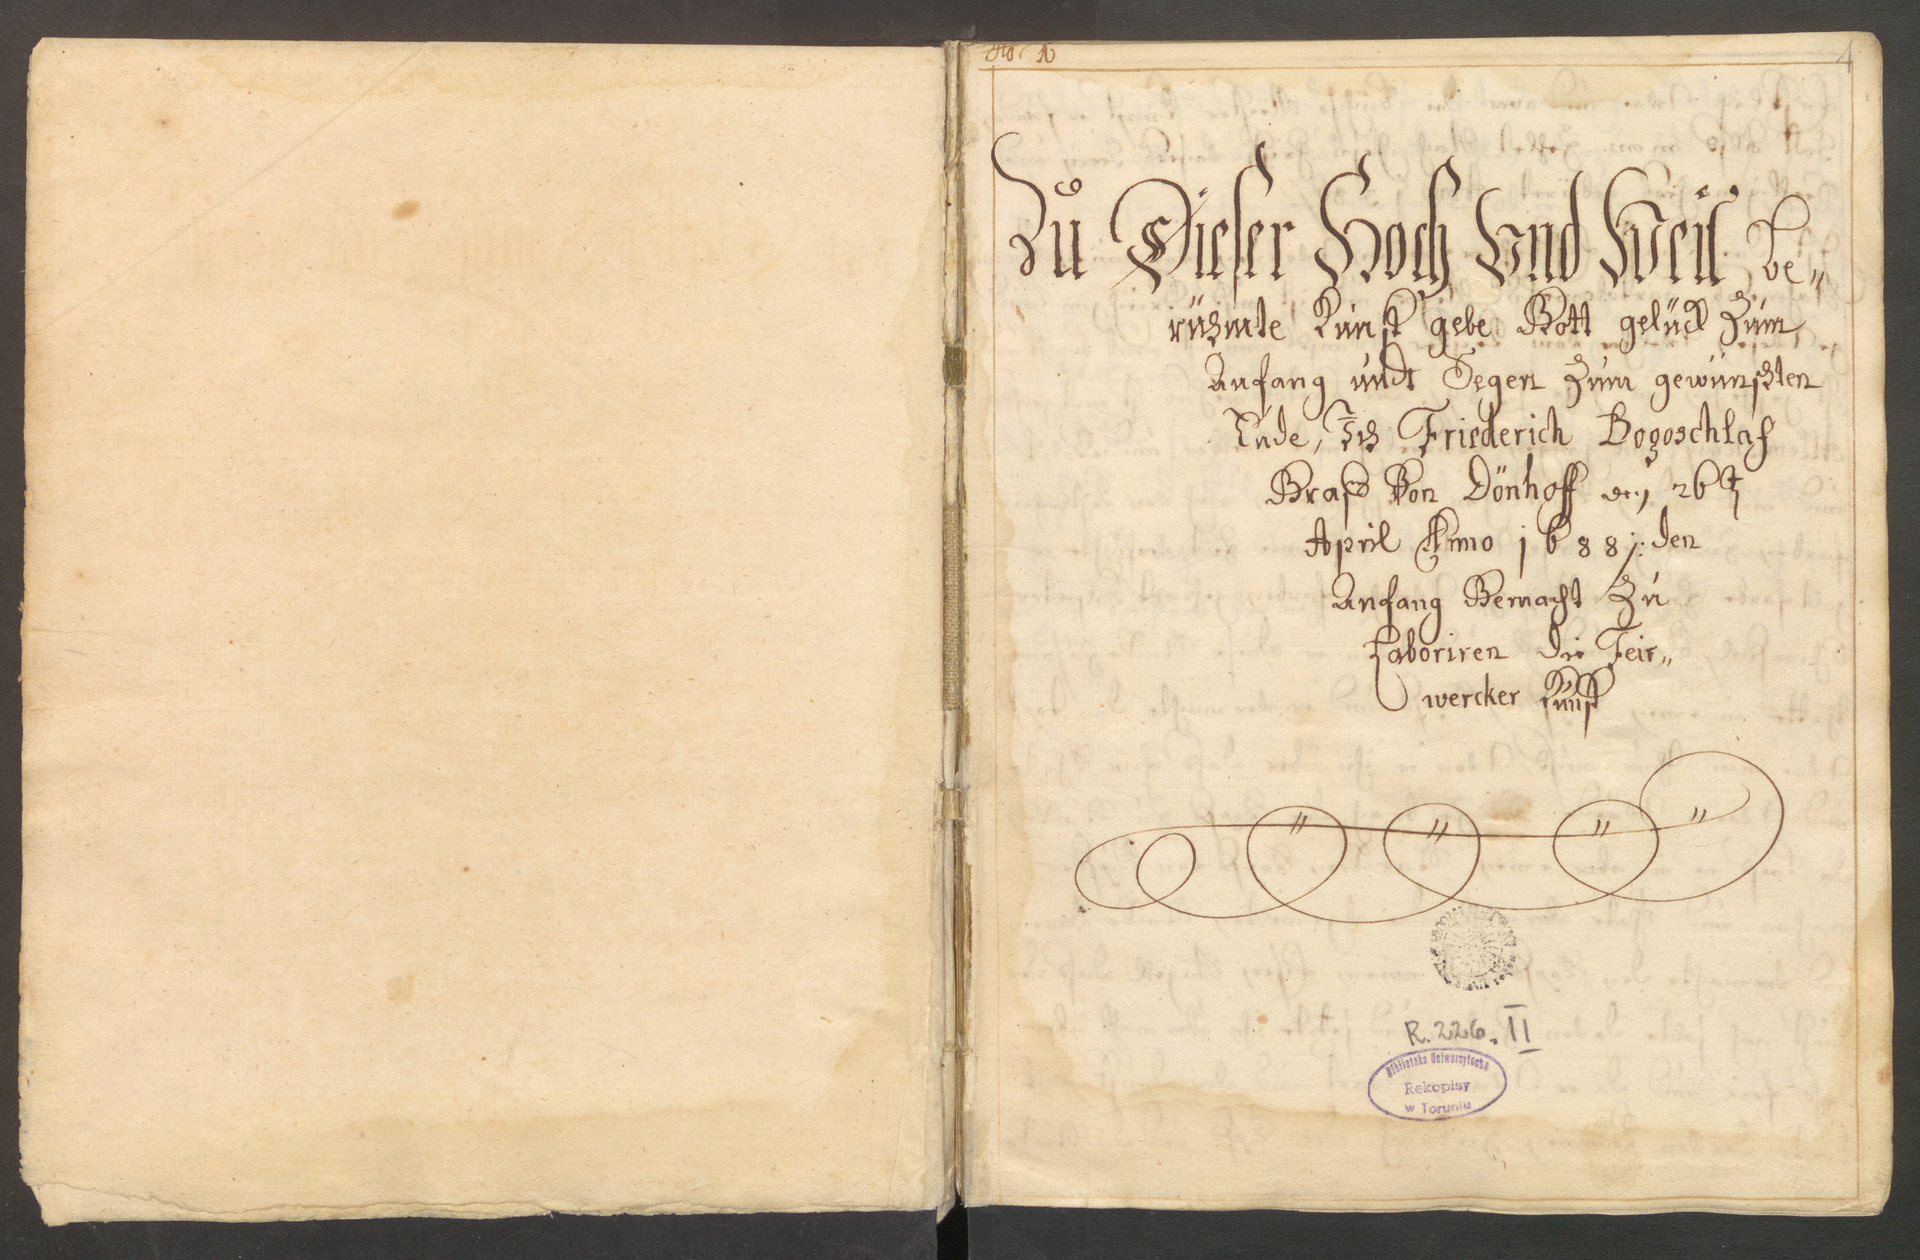 No 1
4
Zu Dieser Hoch Vnd Weil be„
rühmte Kunst gebe Gott gelück Zum
Anfang undt Segen Zum gewünschten
Ende, Ich Friederich Bogoschlaf
Graff Von Dönhoff den 26t
April Anno 1688 /: den
Anfang Gemacht Zu
Laboriren die Feir„
wercker Kunst
R. 226. II
Biblioteka Uniwersytecka
Rękopisy
w Toruniu